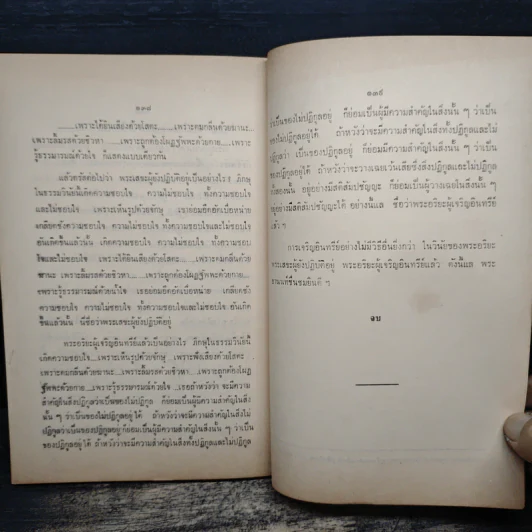 ๑๓๘
.........เพราะได้ยินเสียงด้วยโสตะ......เพราะดมกลิ่นด้วยฆานะ...
...เพราะลิ้มรสด้วยชิวหา ......เพราะถูกต้องโผฏฐัพพะด้วยกาย......เพราะ
รู้ธรรมารมณ์ด้วยใจ ก็แสดงแบบเดียวกัน
แล้วตรัสต่อไปว่า พระเสขะผู้ยังปฏิบัติอยู่เป็นอย่างไร ? ภิกษุ
ในธรรมวินัยนี้เกิดความชอบใจ ความไม่ชอบใจ ทั้งความชอบใจ
และไม่ชอบใจ เพราะเห็นรูปด้วยจักษุ เธอย่อมอึดอัดเบื่อหน่าย
เกลียดชังความชอบใจ ความไม่ชอบใจ ทั้งความชอบใจและไม่ชอบใจ
อันเกิดขึ้นแล้วนั้น เกิดความชอบใจ ความไม่ชอบใจ ทั้งความชอบ
ใจและไม่ชอบใจ เพราะได้ยินเสียงด้วยโสตะ ...เพราะดมกลิ่นด้วย
ฆานะ ...เพราะลิ้มรสด้วยชิวหา ...เพราะถูกต้องโผฏฐัพพะด้วยกาย...
เพราะรู้ธรรมารมณ์ด้วยใจ เธอย่อมอึดอัดเบื่อหน่าย เกลียดชัง
ความชอบใจ ความไม่ชอบใจ ทั้งความชอบใจและไม่ชอบใจ อันเกิด
ขึ้นแล้วนั้น นี่ชื่อว่าพระเสขะผู้ยังปฏิบัติอยู่
พระอริยะผู้เจริญอินทรีย์แล้วเป็นอย่างไร ภิกษุในธรรมวินัยนี้
เกิดความชอบใจ...เพราะเห็นรูปด้วยจักษุ ...เพราะฟังเสียงด้วยโสตะ...
เพราะดมกลิ่นด้วยฆานะ...เพราะลิ้มรสด้วยชิวหา ...เพราะถูกต้องโผฏ
ฐัพพะด้วยกาย ...เพราะรู้ธรรมารมณ์ด้วยใจ เธอถ้าหวังว่า จะมีความ
สำคัญในสิ่งปฏิกูลว่าเป็นของไม่ปฏิกูลอยู่ ก็ย่อมเป็นผู้มีความสำคัญในสิ่ง
นั้น ๆ ว่าเป็นของไม่ปฏิกูลอยู่ได้ ถ้าหวังว่าจะมีความสำคัญในสิ่งไม่
ปฏิกูลว่าเป็นของปฏิกูลอยู่ ก็ย่อมเป็นผู้มีความสำคัญในสิ่งนั้น ๆ ว่าเป็น
ของปฏิกูลอยู่ได้ ถ้าหวังว่าจะมีความสำคัญในสิ่งทั้งปฏิกูลและไม่ปฏิกูล
๑๓๙
ว่าเป็นของไม่ปฏิกูลอยู่ ก็ย่อมเป็นผู้มีความสำคัญในสิ่งนั้น ๆ ว่าเป็น
ของไม่ปฏิกูลอยู่ได้ ถ้าหวังว่าจะมีความสำคัญในสิ่งทั้งปฏิกูลและไม่
ปฏิกูลว่า เป็นของปฏิกูลอยู่ ก็ย่อมเป็นผู้มีความสำคัญในสิ่งนั้น ๆ ว่า
เป็นของปฏิกูลอยู่ได้ ถ้าหวังว่าจะวางเฉยเว้นเสียซึ่งสิ่งปฏิกูลและไม่
ทั้งสองนั้น อยู่อย่างมีสติสัมปชัญญะ ก็ย่อมเป็นผู้วางเฉยในสิ่งนั้น ๆ
อยู่อย่างมีสติสัมปชัญญะได้ อย่างนี้แล ชื่อว่าพระอริยะผู้เจริญอินทรีย์
แล้ว ฯ
การเจริญอินทรีย์อย่างไม่มีวิธีอื่นยิ่งกว่า ในวินัยของพระอริยะ
พระเสขะผู้ยังปฏิบัติอยู่ พระอริยะผู้เจริญอินทรีย์แล้ว ดังนี้แล พระ
อานนท์ชื่นชมยินดี ฯ
จบ